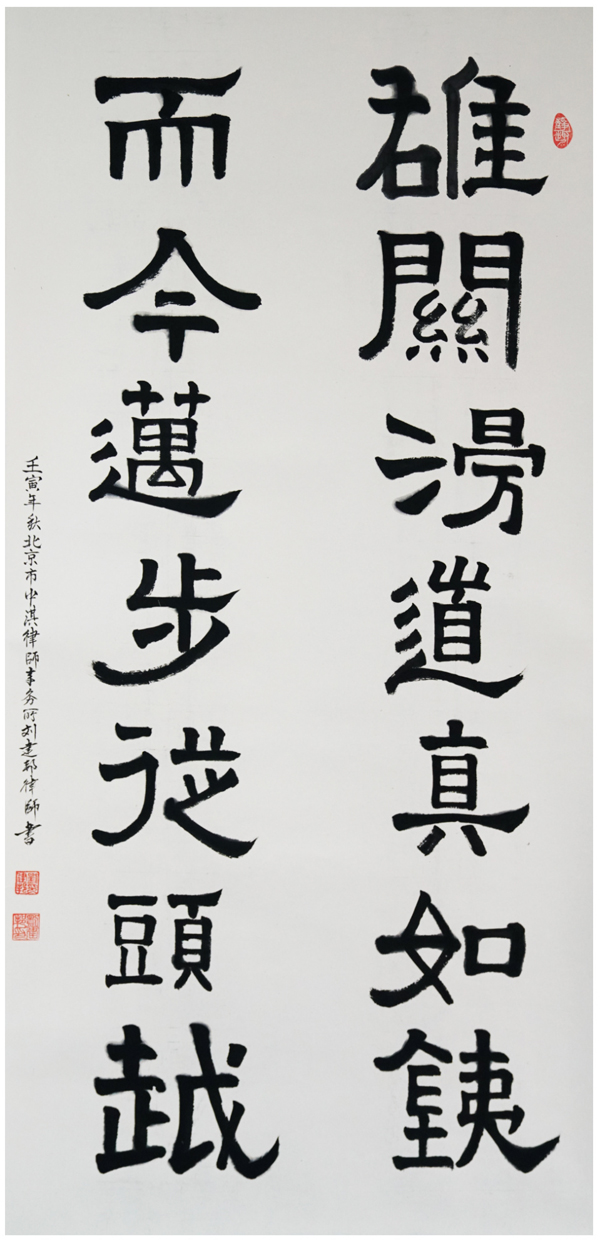 雄關漫道真如銕
而今邁步從頭越
壬寅年秋北京市中淇律師事务所刘建邦律師書